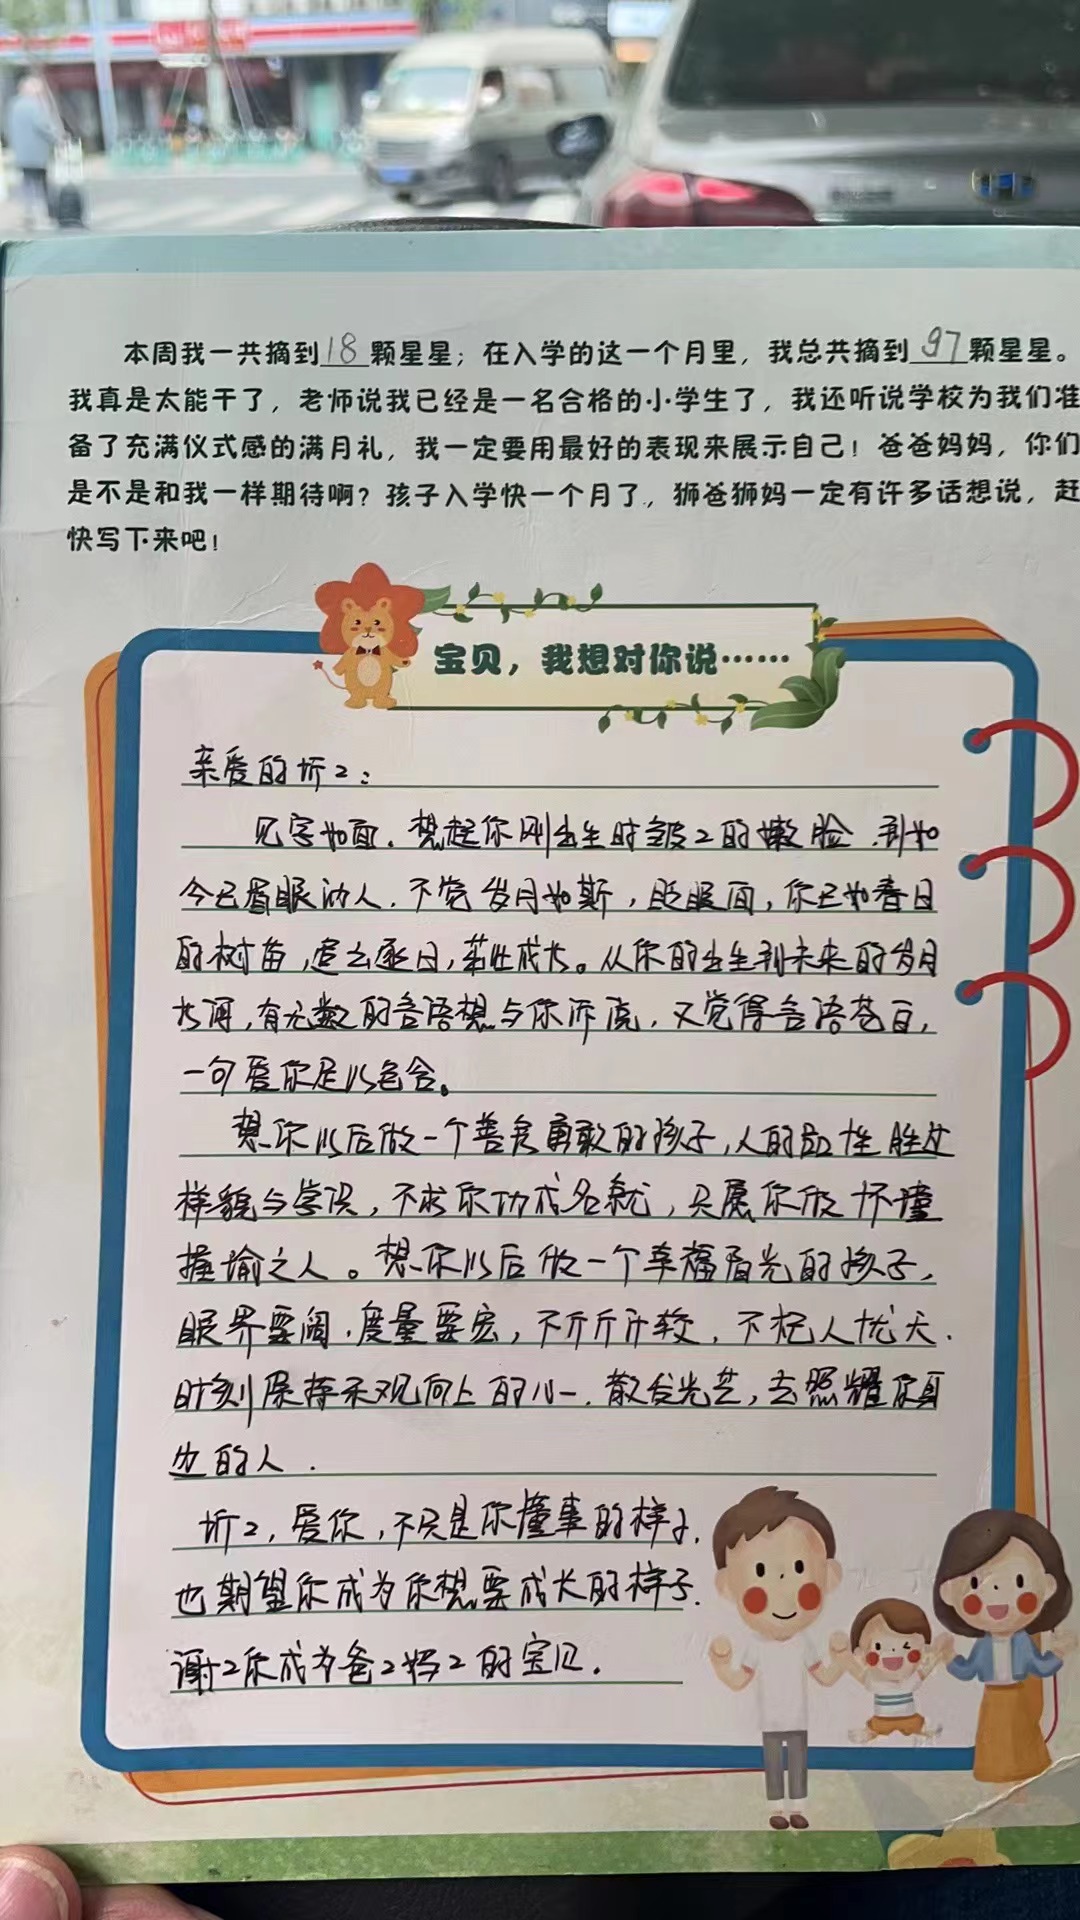 本周我一共摘到18颗星星；在入学的这一个月里，我总共摘到97颗星星。
我真是太能干了，老师说我已经是一名合格的小学生了，我还听说学校为我们准
备了充满仪式感的满月礼，我一定要用最好的表现来展示自己！爸爸妈妈，你们
是不是和我一样期待啊？孩子入学快一个月了，狮爸狮妈一定有许多话想说，赶
快写下来吧！
宝贝，我想对你说……
亲爱的圻2：
见字如面.想起你刚出生时皱2的嫩脸.到如
今已眉眼动人.不觉岁月如斯，眨眼间，你已如春日
的树苗，追云逐日，茁壮成长。从你的出生到未来的岁月
长河，有无数的言语想与你诉说.又觉得言语苍白，
一句爱你足以包含。
想你以后做一个善良勇敢的孩子，人的品性胜过
样貌与学识，不求你功成名就，只愿你做怀瑾
握瑜之人。想你以后做一个幸福有光的孩子，
眼界要阔.度量要宏，不斤斤计较.不杞人忧天.
时刻保持乐观向上的心.散发光芒，去照耀你身
边的人.
圻2，爱你，不只是你懂事的样子.
也期望你成为你想要成长的样子.
谢2你成为爸2妈2的宝贝.